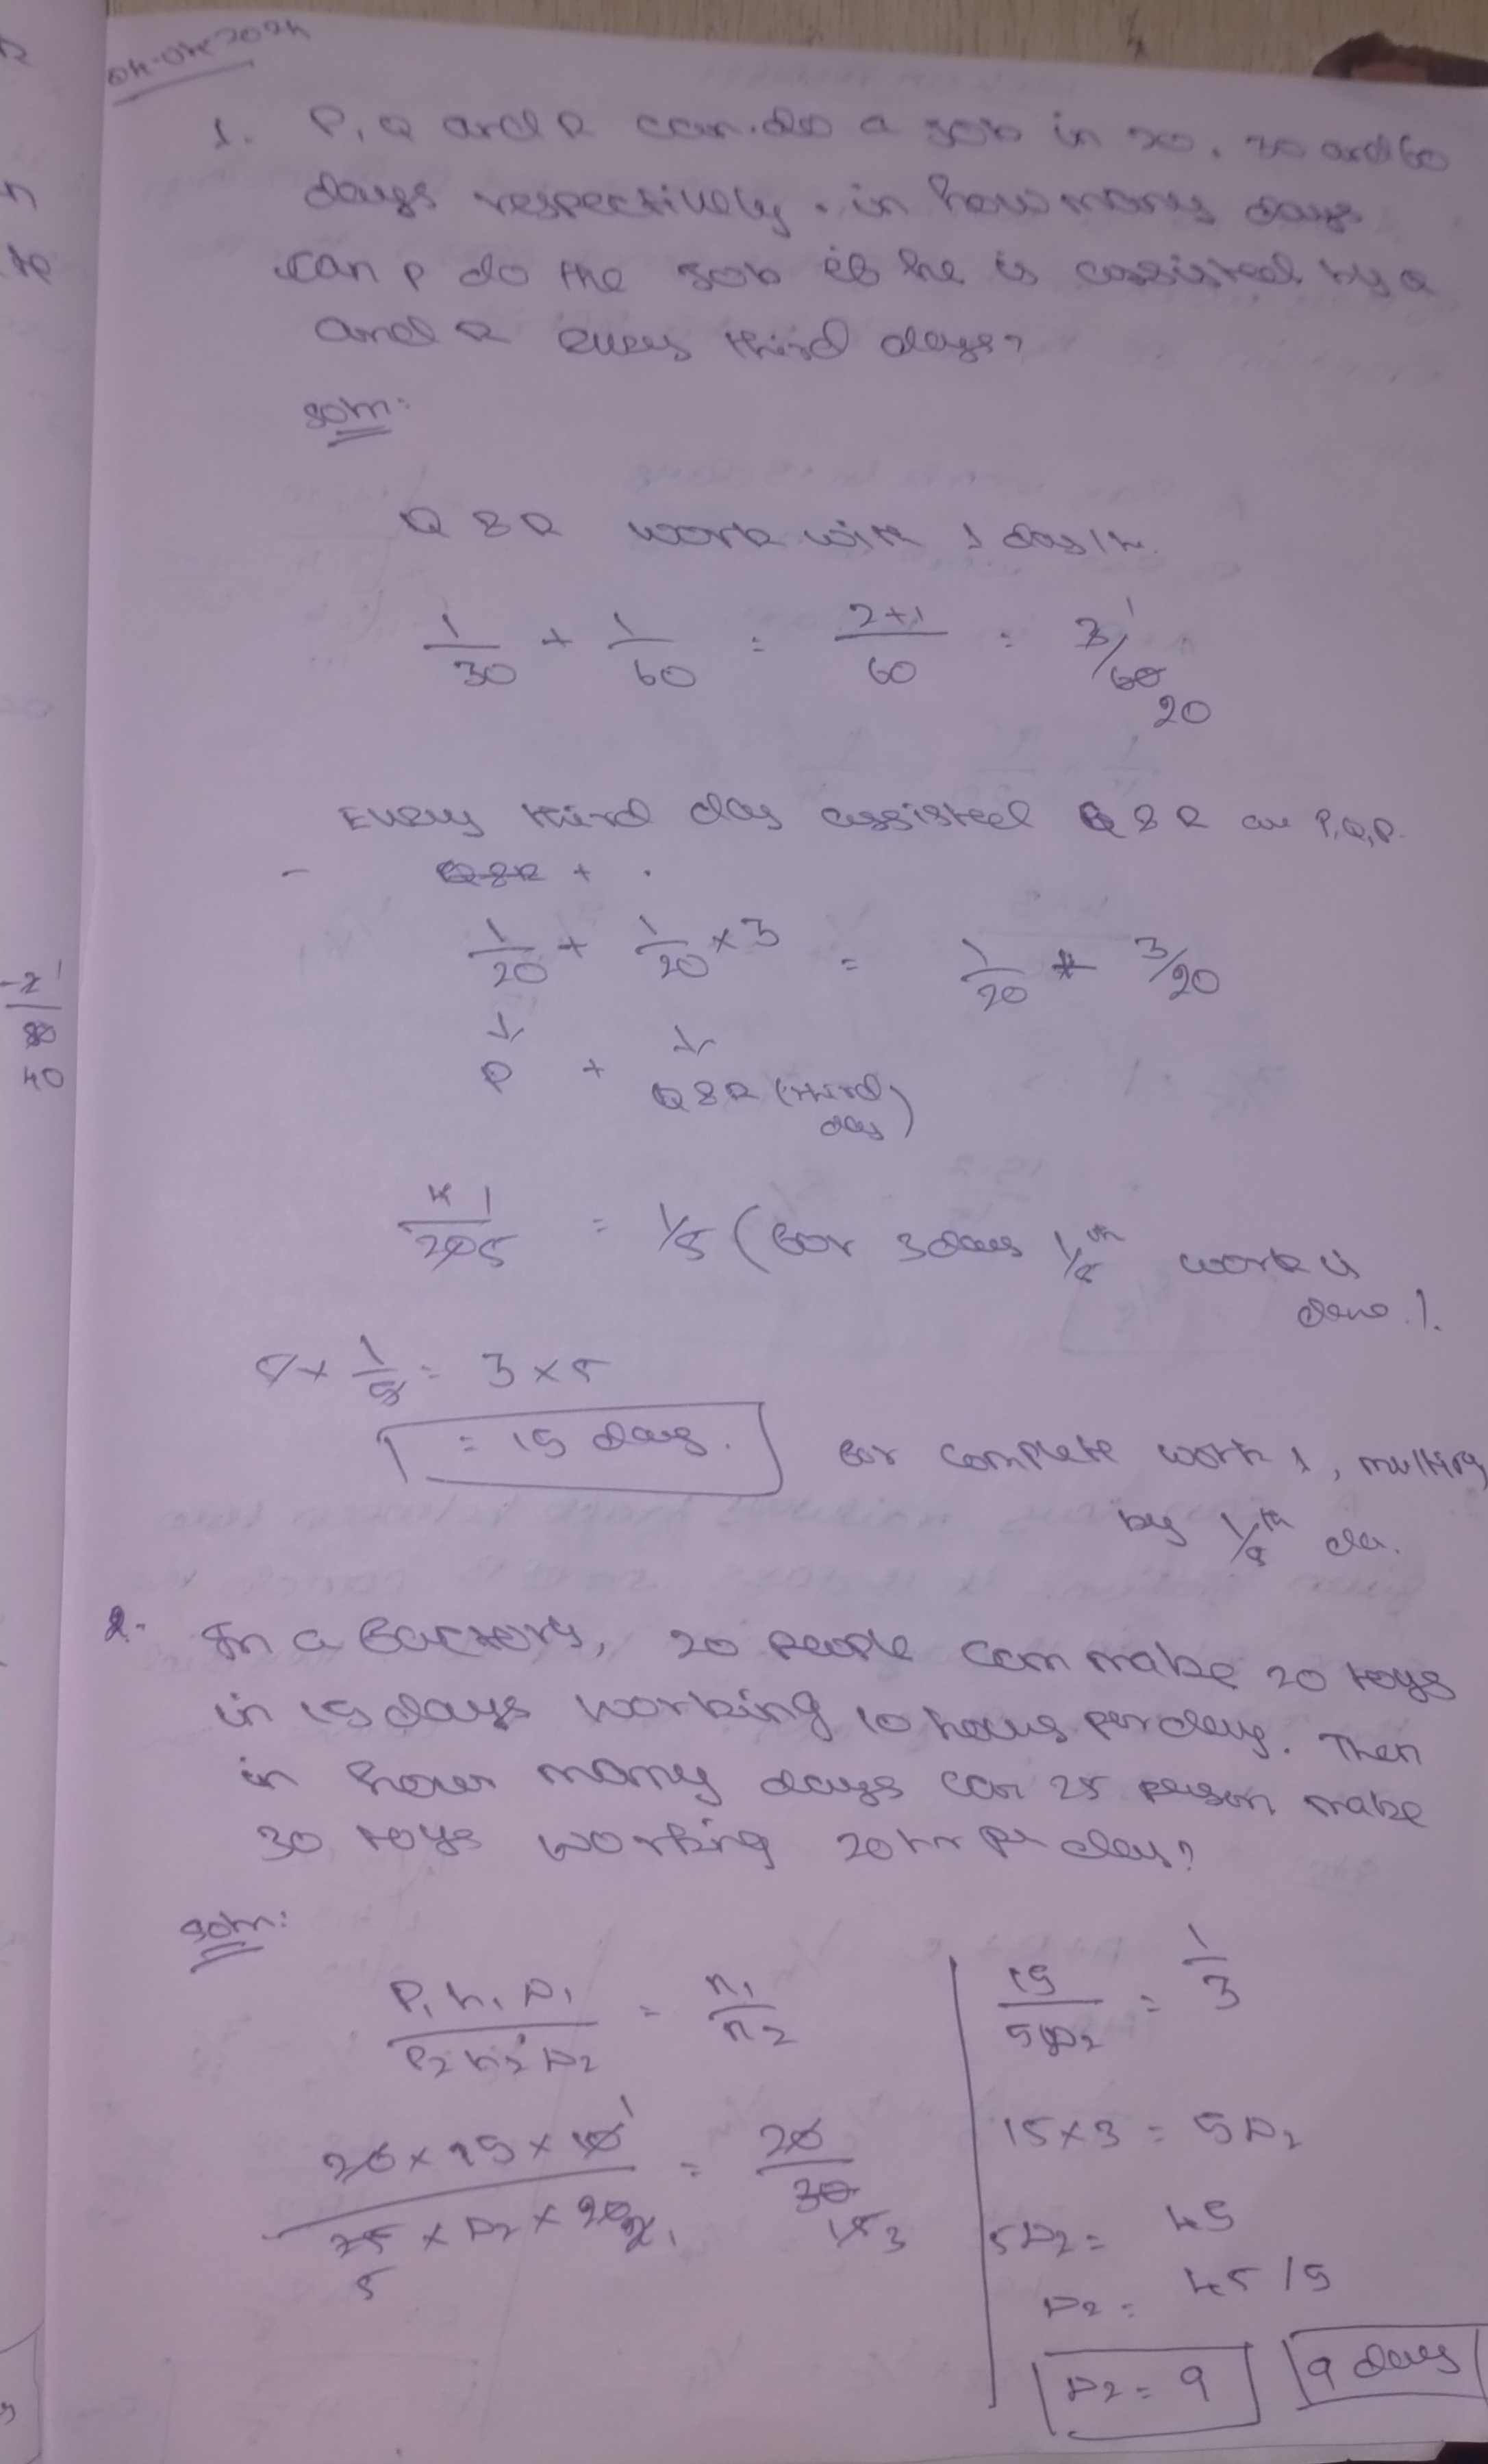 04-Oct-2024
1. P, Q and R can do a job in 20, 30 and 60
days respectively. in how many days
can P do the job if he is assisted by Q
and R every third days?
soln:
Q & R work with 1 day
1/30 + 1/60 = 2+1/60 = 3/60 1 20
Every third day assisted Q & R are P, Q, R.
Q&R + .
1/20 + 1/20 × 3 = 1/20 + 3/20
P + Q & R (third day)
4/20 1 5 = 1/5 (for 3 days 1/5 th work is
done).
5 × 1/5 = 3 × 5
= 15 days. for complete work 1, multiply
by 1/5 th
2. In a factory, 20 people can make 20 toys
in 15 days working 10 hours per day. Then
in how many days can 25 person make
30 toys working 20 hr per day?
soln:
P1 h1 D1 / P2 h2 D2 = n1/n2
20 × 15 × 10 1 / 25 × D2 × 20 2 1 = 20/30
5 15 3
15/5D2 = 1/3
15×3 = 5D2
5D2 = 45
D2 = 45/5
D2 = 9 9 days
-2 1
80
40